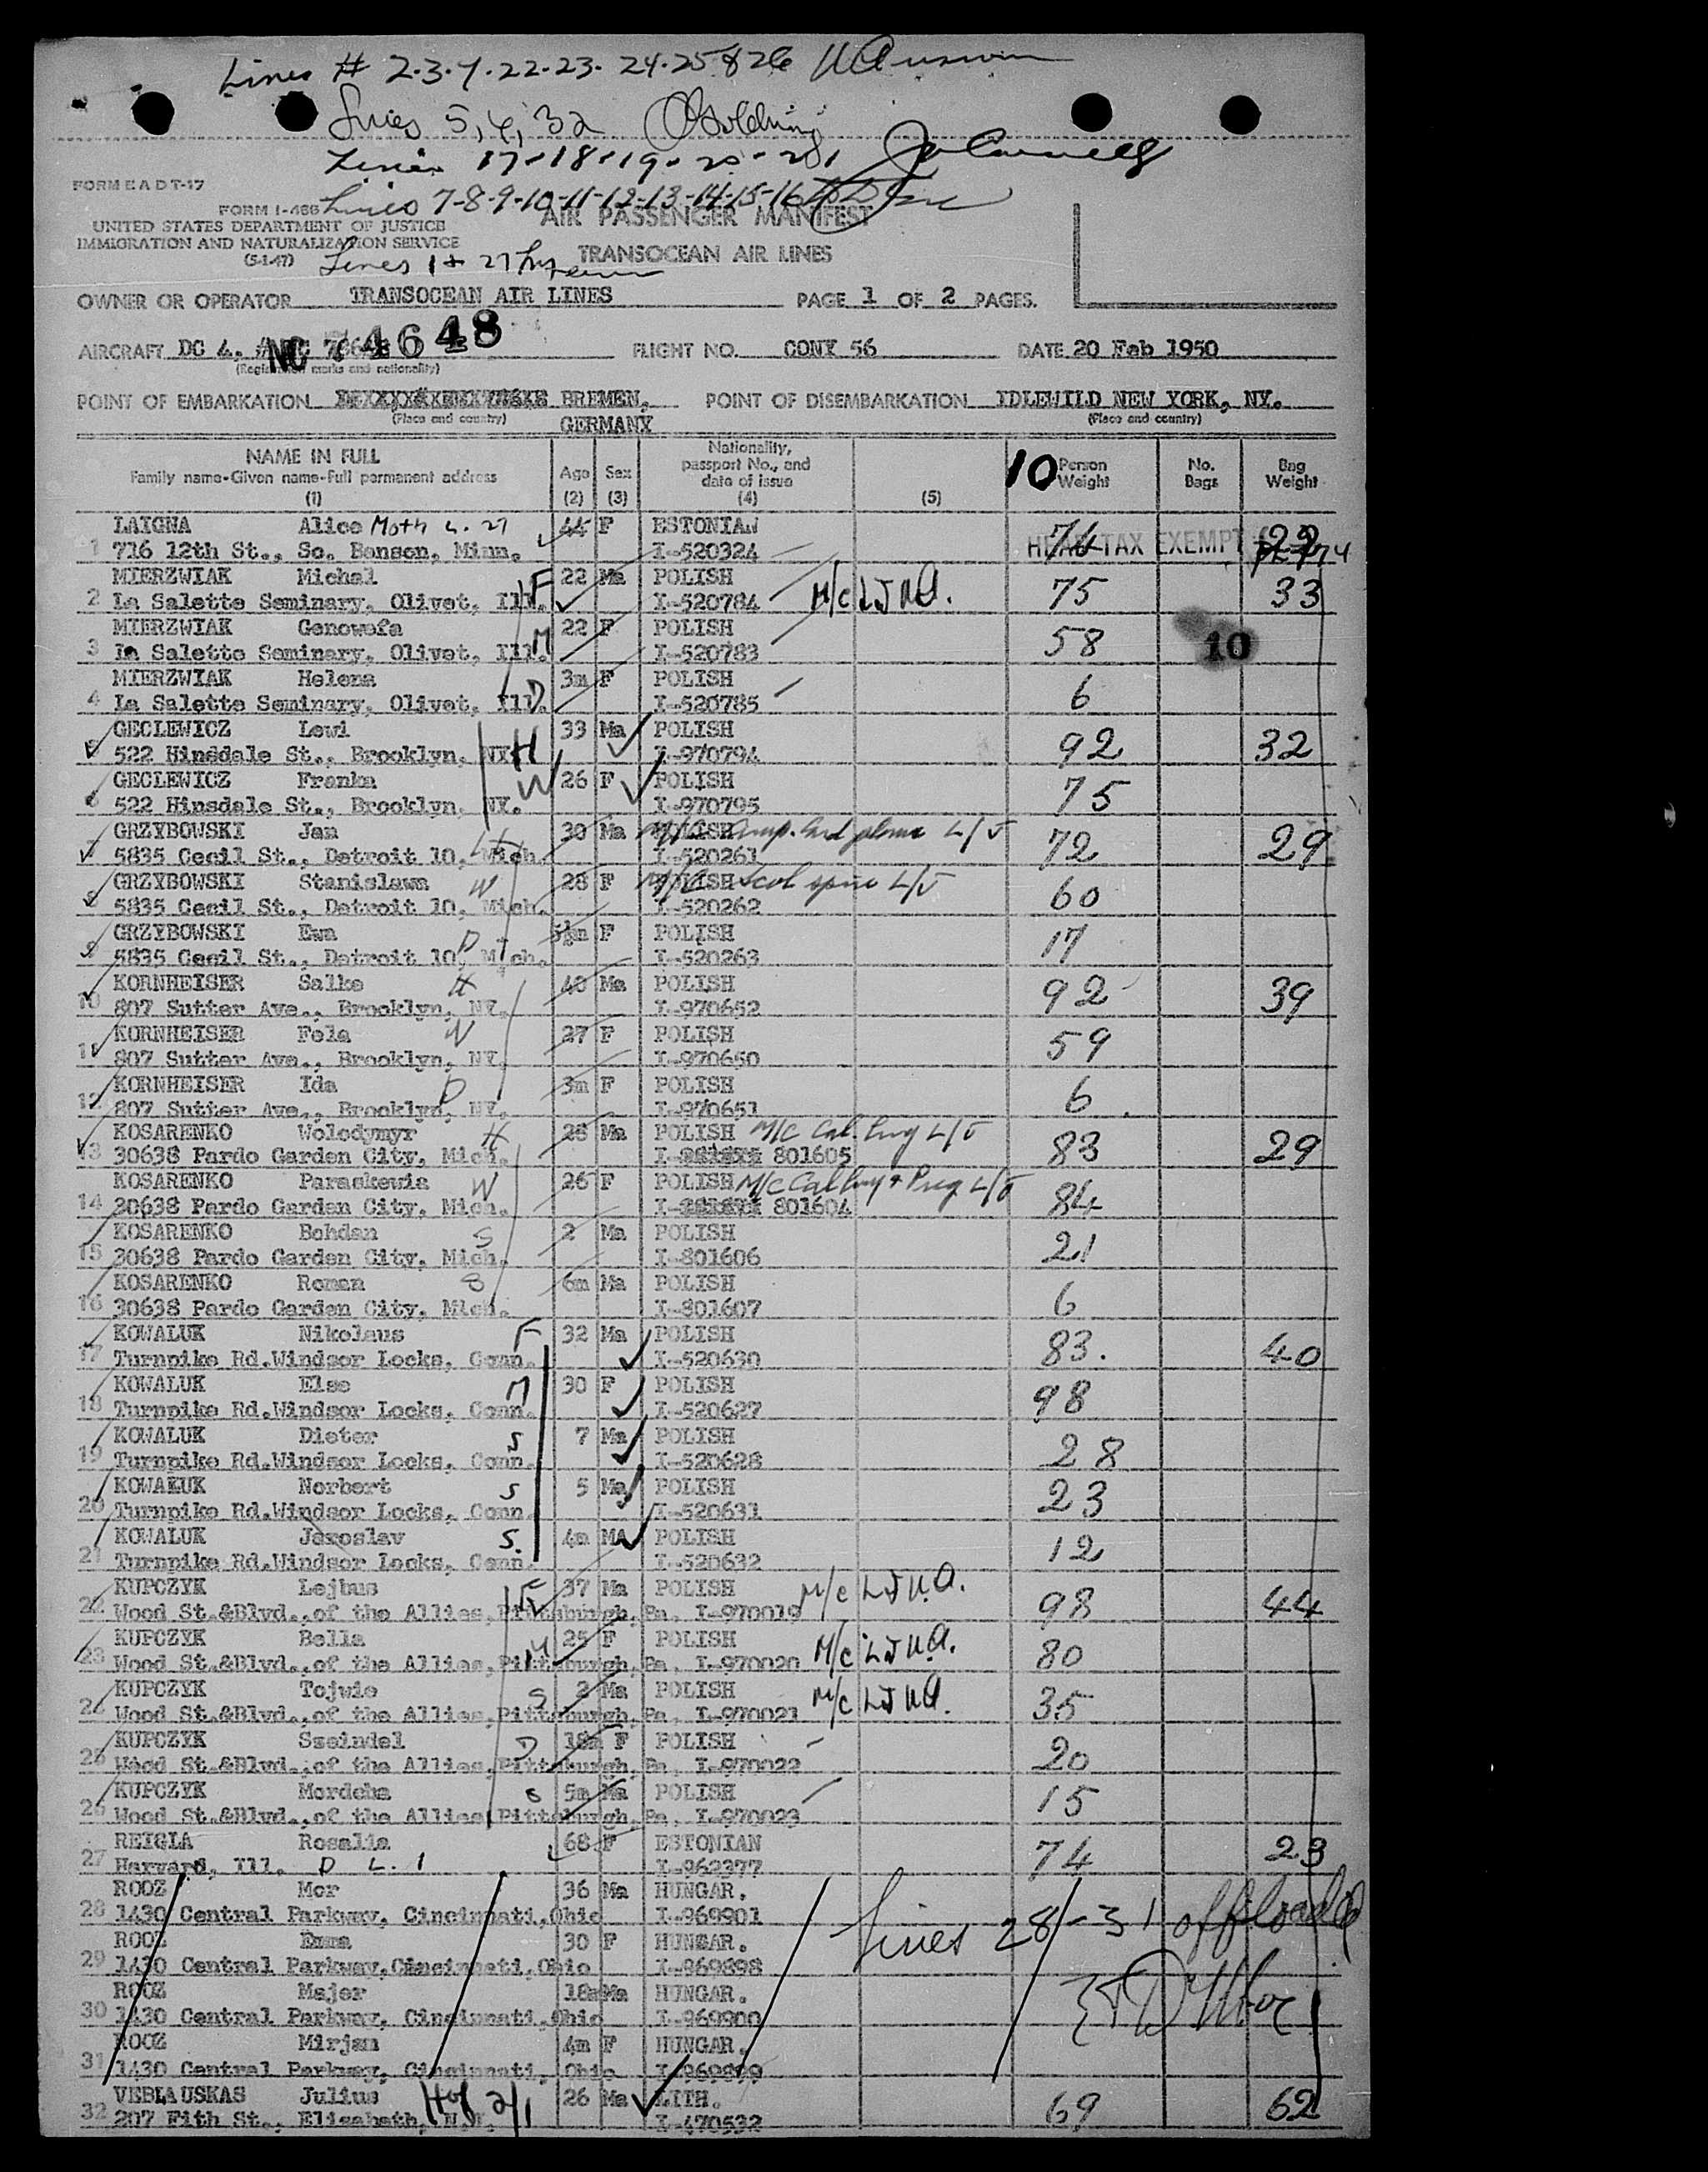 Lines # 2.3.4.22.23. 24.25 & 26
Lines 5, 6, 32
Lines 17-18-19-20-21
FORM E A D T-17
Lines 7-8-9-10-11-12-13-14-15-16
FORM I-466
AIR PASSENGER MANIFEST
UNITED STATES DEPARTMENT OF JUSTICE
IMMIGRATION AND NATURALIZATION SERVICE
(5-1-47)
TRANSOCEAN AIR LINES
Lines 1 & 27
OWNER OR OPERATOR TRANSOCEAN AIR LINES PAGE 1 OF 2 PAGES.
AIRCRAFT DC 4. NC 4648 FLIGHT NO. CONX 56 DATE 20 Feb 1950
(Registration marks and nationality)
POINT OF EMBARKATION BREMEN, POINT OF DISEMBARKATION IDLEWILD NEW YORK, NY.
(Place and country) GERMANY (Place and country)
NAME IN FULL Age Sex Nationality, passport No., and date of issue 10 Person Weight No. Bags Bag Weight
Family name-Given name-Full permanent address
(1) (2) (3) (4) (5)
LAIGNA Alice Moth L. 27 44 F ESTONIAN 74 22
1 716 12th St., So. Benson, Minn. I-520324 HEAD TAX EXEMPT
MIERZWIAK Michal F 22 Ma POLISH 75 33
2 La Salette Seminary, Olivet, Ill. I-520784 M/C
MIERZWIAK Genowefa 22 F POLISH 58 10
3 La Salette Seminary, Olivet, Ill. M I-520783
MIERZWIAK Helena 3m F POLISH 6
4 La Salette Seminary, Olivet, Ill. D I-520785
GECLEWICZ Lewi 33 Ma POLISH 92 32
5 522 Hinsdale St., Brooklyn, NY. H I-970794
GECLEWICZ Franka W 26 F POLISH 75
6 522 Hinsdale St., Brooklyn, NY. I-970795
GRZYBOWSKI Jan 30 Ma POLISH L/J 72 29
7 5835 Cecil St., Detroit 10, Mich. H I-520261
GRZYBOWSKI Stanislawa W 28 F POLISH spine L/J 60
8 5835 Cecil St., Detroit 10, Mich. I-520262
GRZYBOWSKI Ewa D F POLISH 17
9 5835 Cecil St., Detroit 10, Mich. I-520263
KORNHEISER Salke H 40 Ma POLISH 92 39
10 807 Sutter Ave., Brooklyn, NY. I-970652
KORNHEISER Fela W 27 F POLISH 59
11 807 Sutter Ave., Brooklyn, NY. I-970650
KORNHEISER Ida D 3m F POLISH 6
12 807 Sutter Ave., Brooklyn, NY. I-970651
KOSARENKO Wolodymyr H 28 Ma POLISH M/C Cal. Lung L/J 83 29
13 30638 Pardo Garden City, Mich. I- 801605
KOSARENKO Paraskewia W 26 F POLISH M/C Cal Lung & Preg L/J 84
14 30638 Pardo Garden City, Mich. I- 801604
KOSARENKO Bohdan S 2 Ma POLISH 21
15 30638 Pardo Garden City, Mich. I-801606
KOSARENKO Roman S 6m Ma POLISH 6
16 30638 Pardo Garden City, Mich. I-801607
KOWALUK Nikolaus F 32 Ma POLISH 83. 40
17 Turnpike Rd.Windsor Locks, Conn. I-520630
KOWALUK Else M 30 F POLISH 98
18 Turnpike Rd.Windsor Locks, Conn. I-520627
KOWALUK Dieter S 7 Ma POLISH 28
19 Turnpike Rd.Windsor Locks, Conn. I-520628
KOWALUK Norbert S 5 Ma POLISH 23
20 Turnpike Rd.Windsor Locks, Conn. I-520631
KOWALUK Jaroslav S. 4m MA POLISH 12
21 Turnpike Rd.Windsor Locks, Conn. I-520632
KUPCZYK Lejbus F 37 Ma POLISH M/C 98 44
22 Wood St.&Blvd.,of the Allies,Pittsburgh,Pa, I-970019
KUPCZYK Bella M 25 F POLISH M/C 80
23 Wood St.&Blvd.,of the Allies,Pittsburgh,Pa, I-970020
KUPCZYK Tojwie S 2 Ma POLISH M/C 35
24 Wood St.&Blvd.,of the Allies,Pittsburgh,Pa, I-970021
KUPCZYK Szeindel D 18m F POLISH 20
25 Wood St.&Blvd.,of the Allies,Pittsburgh,Pa, I-970022
KUPCZYK Mordcha S 5m Ma POLISH 15
26 Wood St.&Blvd.,of the Allies,Pittsburgh,Pa, I-970023
REIGLA Rosalia 68 F ESTONIAN 74 23
27 Harvard, Ill. D L. 1 I-962377
ROOZ Mor 36 Ma HUNGAR.
28 1430 Central Parkway, Cincinnati,Ohio I-969901 Lines 28-31 offloaded
ROOZ Emma 30 F HUNGAR.
29 1430 Central Parkway,Cincinnati,Ohio I-969898
ROOZ Majer 18m Ma HUNGAR.
30 1430 Central Parkway, Cincinnati,Ohio I-969900
ROOZ Mirjam 4m F HUNGAR.
31 1430 Central Parkway, Cincinnati, Ohio I-969899
VEBLAUSKAS Julius 26 Ma LITH. 69 62
32 207 Fith St., Elisabeth, N.J. I-470532